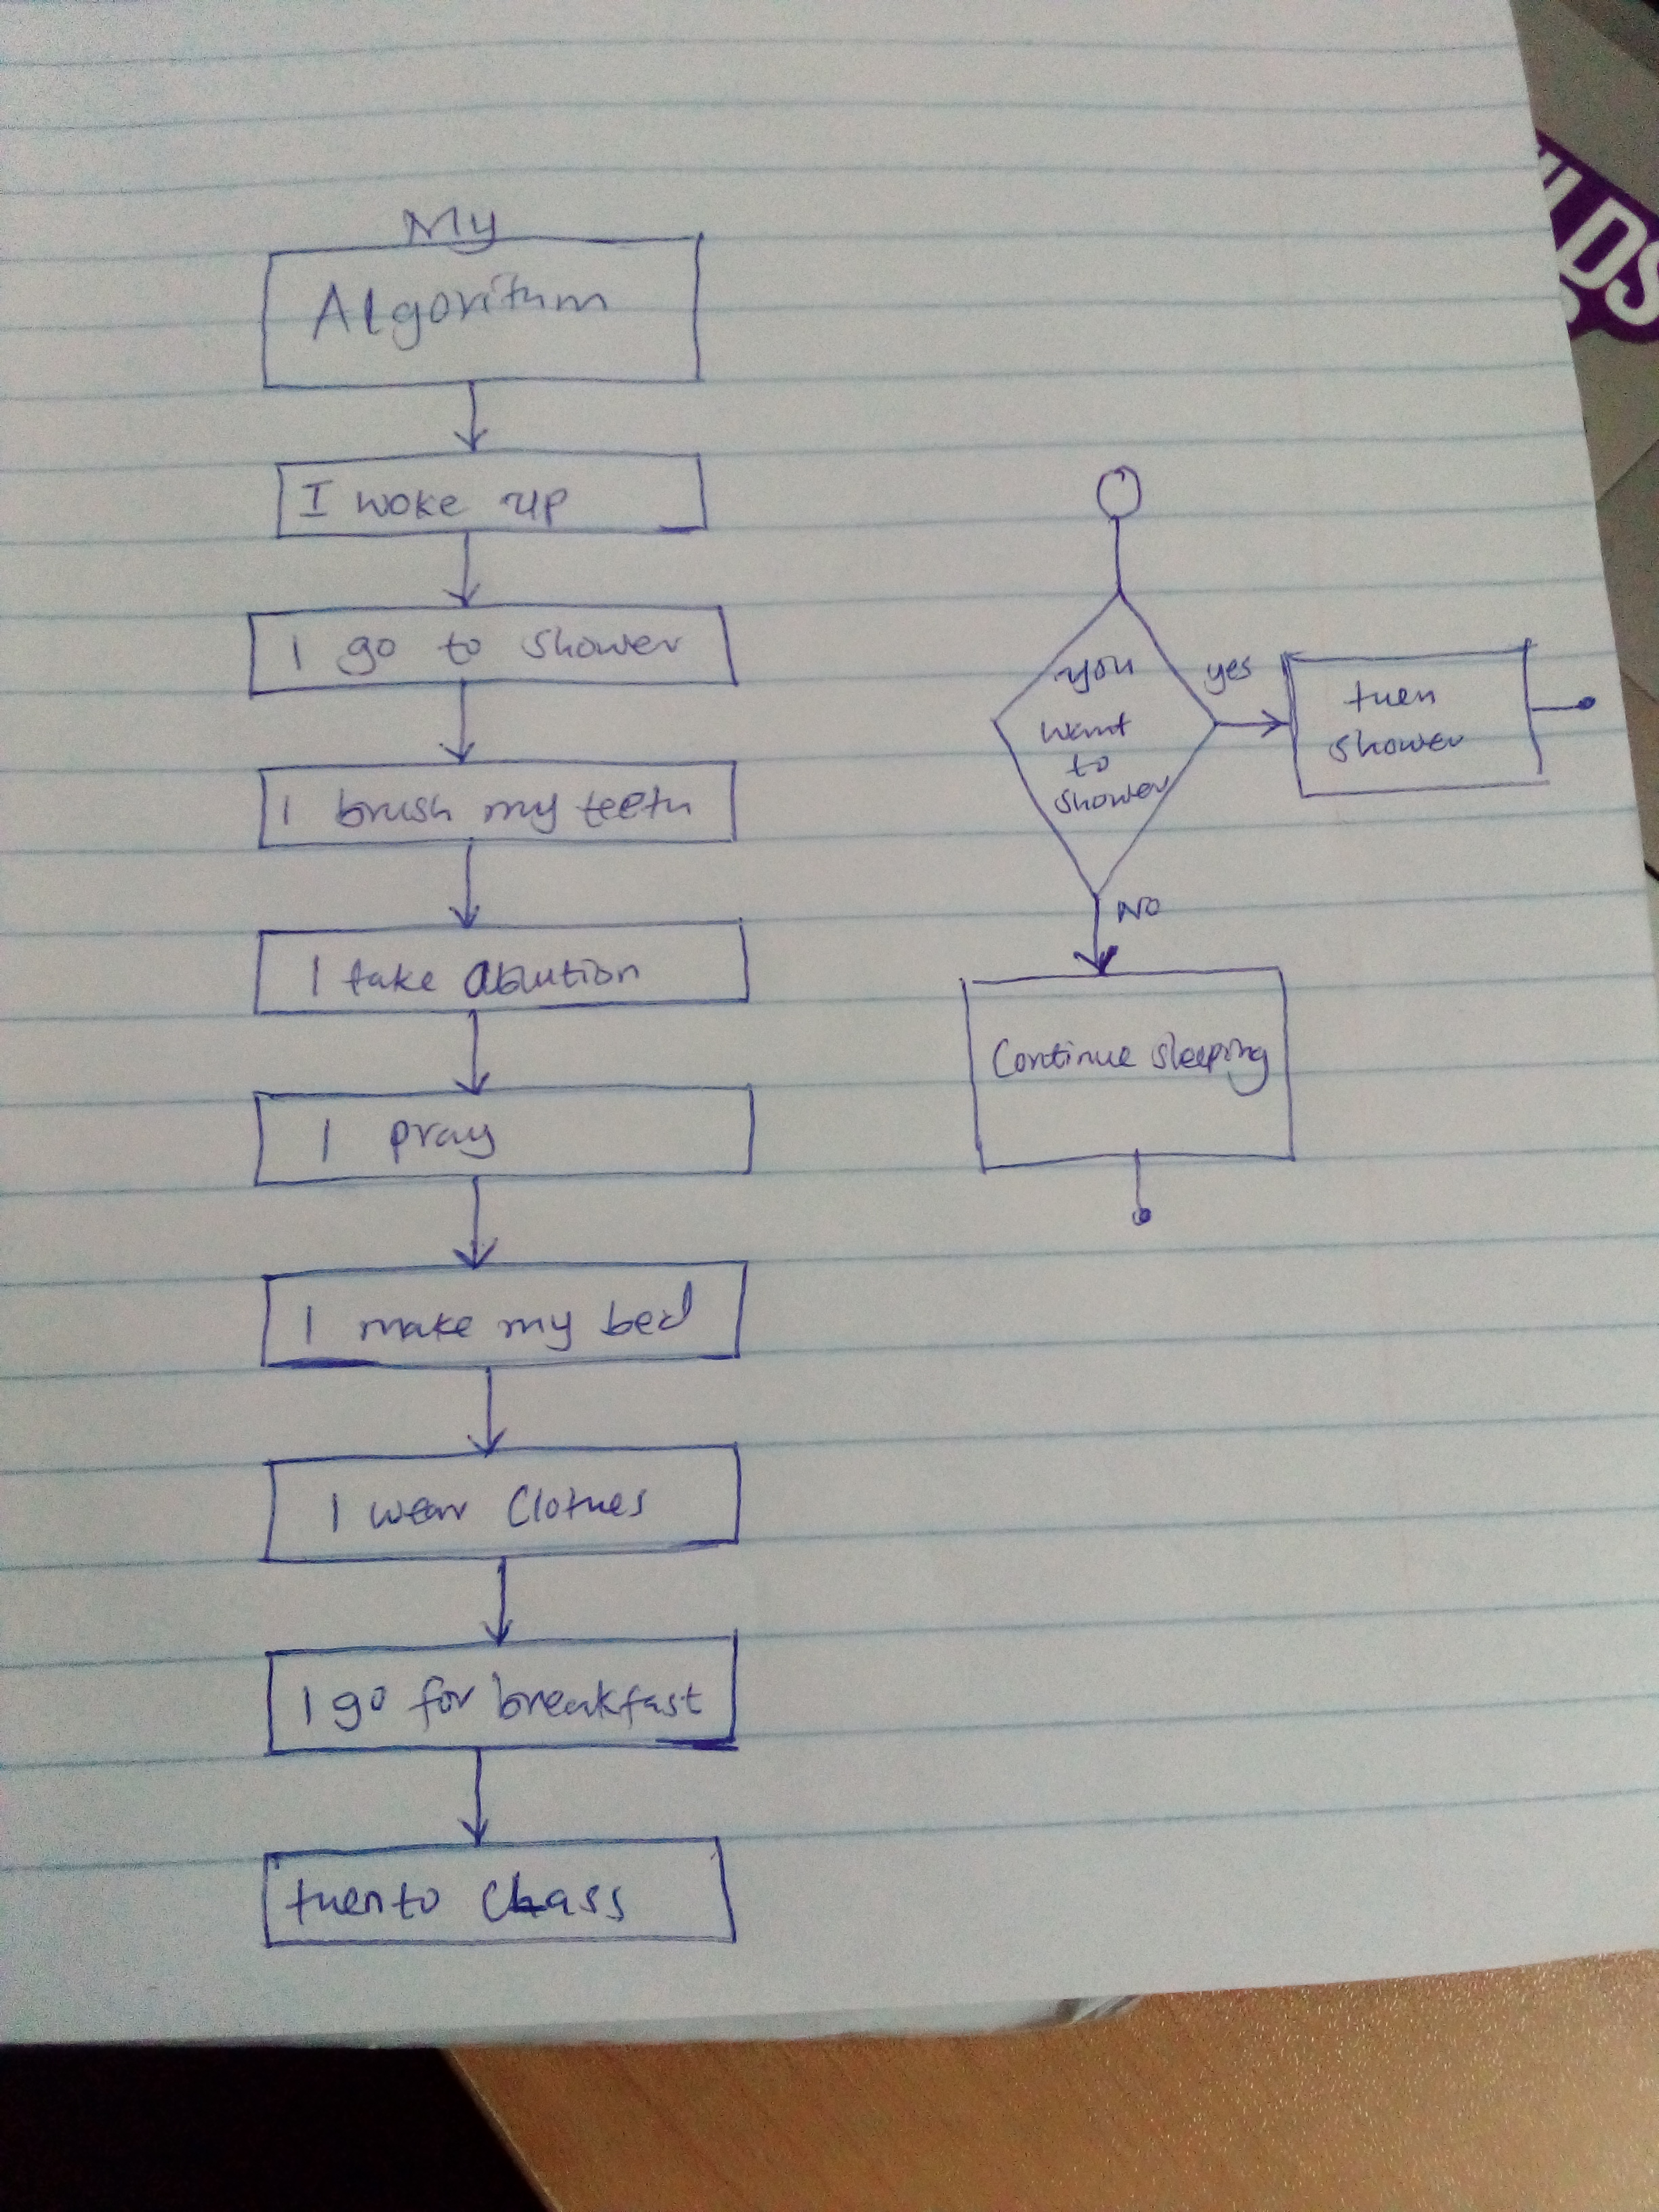 My
Algorithm
I woke up
I go to shower
I brush my teeth
I take abution
I pray
I make my bed
I wear Clothes
I go for breakfast
then to Class
you
want
to
shower
yes
then
shower
NO
Continue sleeping
LDS